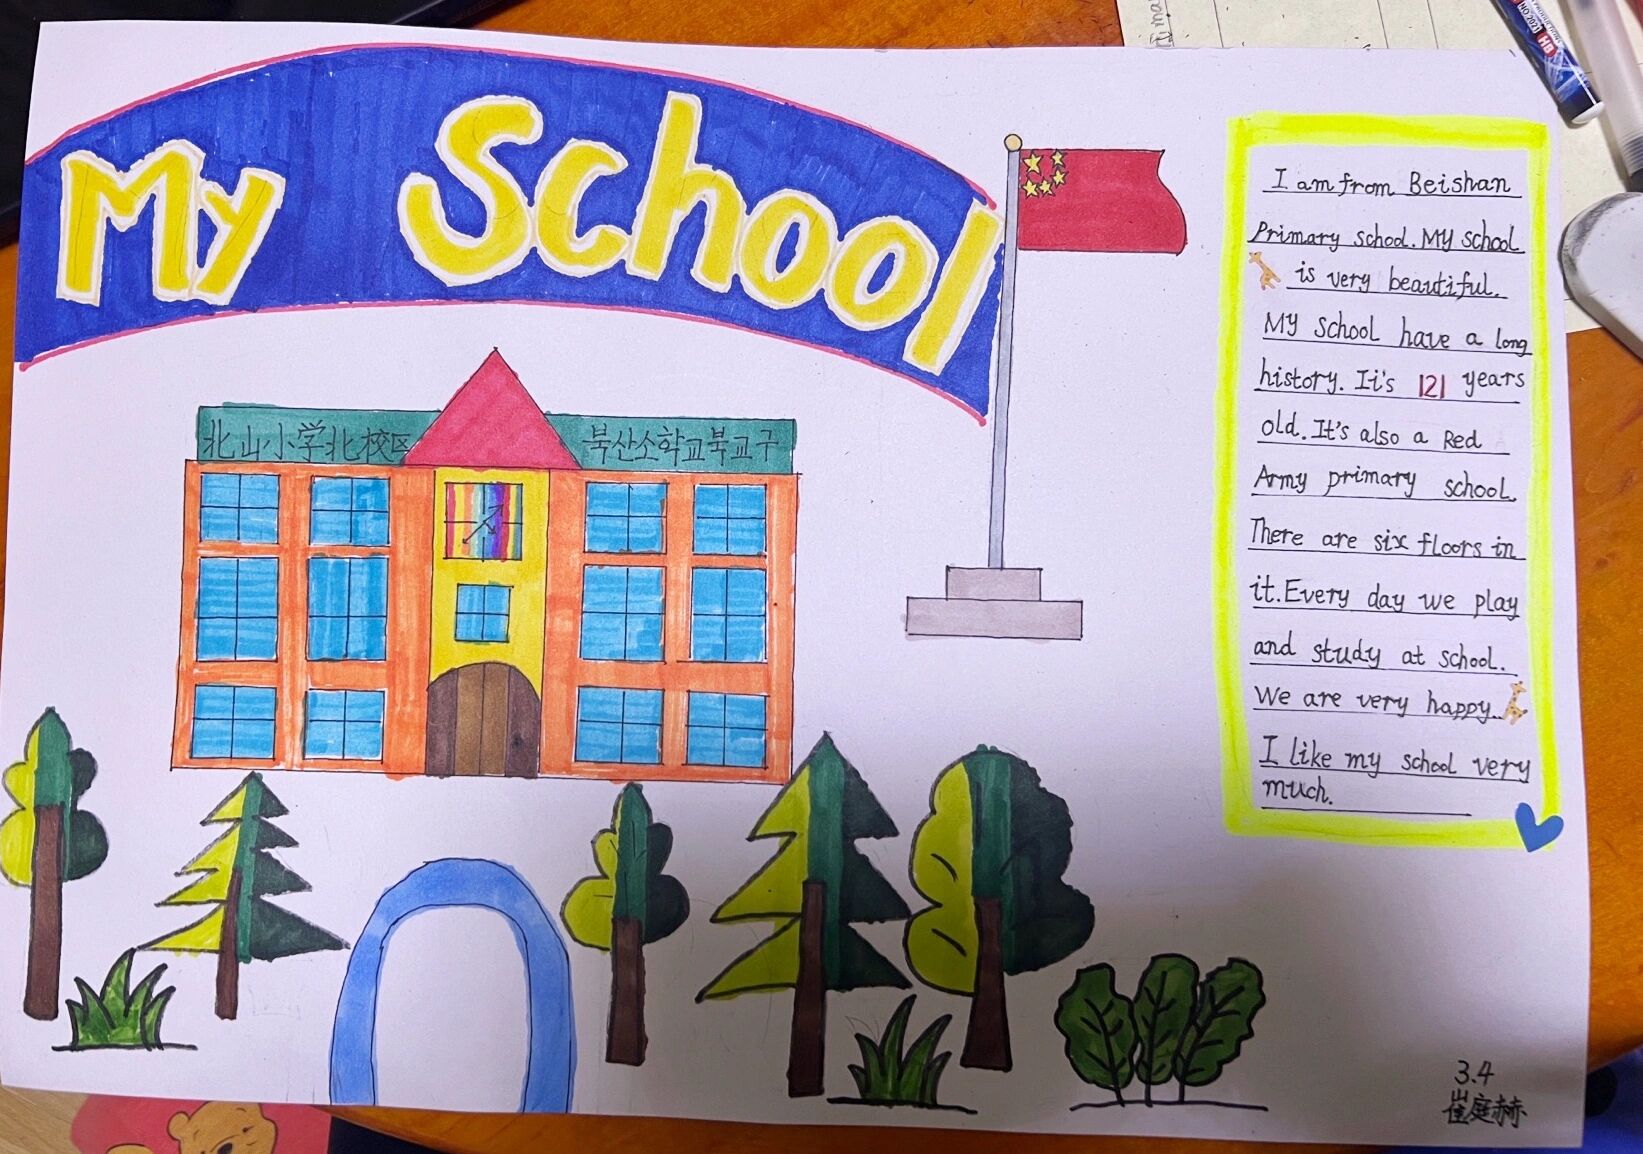 My School
北山小学北校区
북산소학교북교구
I am from Beishan
Primary school. My school
is very beautiful.
My school have a long
history. It's 121 years
old. It's also a Red
Army primary school.
There are six floors in
it. Every day we play
and study at school.
We are very happy.
I like my school very
much.
3.4
崔庭赫
HB